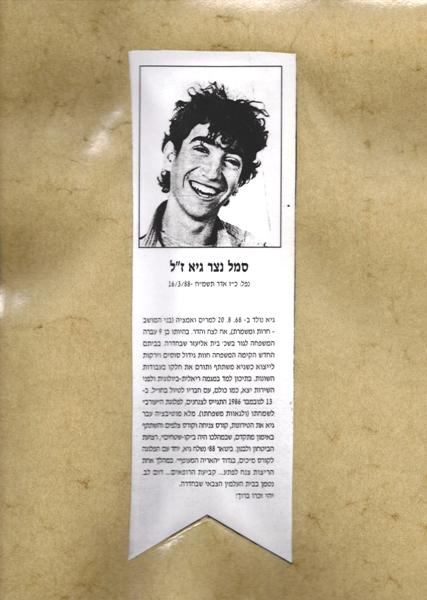 סמל נצר גיא ז"ל
נפל: כ"ז אדר תשמ"ח -16/3/88
גיא נולד ב- 20.8.68 למרים ואמציה (בני המושב
- חרות ומשמרת), אח לצח והדר. בהיותו בן 9 עברה
המשפחה לגור בשכ' בית אליעזר שבחדרה. בביתם
החדש הקימה המשפחה חוות גידול סוסים וירקות
לייצוא כשגיא משתתף ותורם את חלקו בעבודות
השונות. בתיכון למד במגמה ריאלית-ביולוגית ולפני
השירות יצא, כמו כולם, עם חבריו לטיול בחו"ל. ב-
13 לנובמבר 1986 התגייס לצנחנים, לפלוגת
לשמחתו (ולגאוות משפחתו). מלא מוטיבציה עבר
גיא את הטירונות, קורס צניחה וקורס צלפים והשתתף
באימון מתקדם, שבמהלכו היה
הביטחון ולבנון. בינואר 88' נשלח גיא, יחד עם הפלוגה
לקורס מ"כים, בגדוד במהלך אחת
הריצות צנח לפתע... קביעת הרופאים... דום לב.
נטמן בבית העלמין הצבאי שבחדרה.
יהי זכרו ברוך!